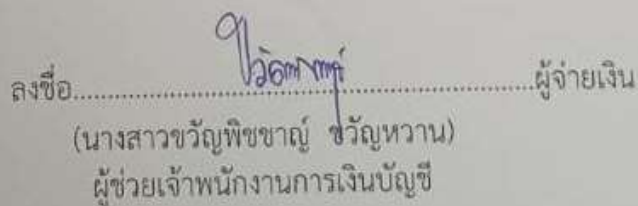 ลงชื่อ..........................................................ผู้จ่ายเงิน
(นางสาวขวัญพิชชาญ์ ขวัญหวาน)
ผู้ช่วยเจ้าพนักงานการเงินบัญชี